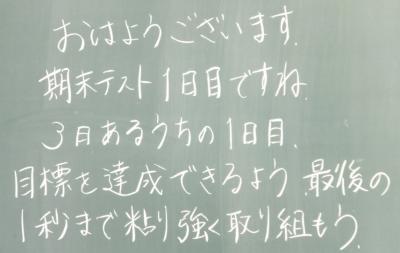 おはようございます.
期末テスト1日目ですね.
3日あるうちの1日目.
目標を達成できるよう.最後の
1秒まで粘り強く取り組もう.